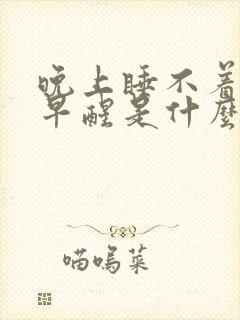 晚上睡不着
早醒是什麼
喵呜菜